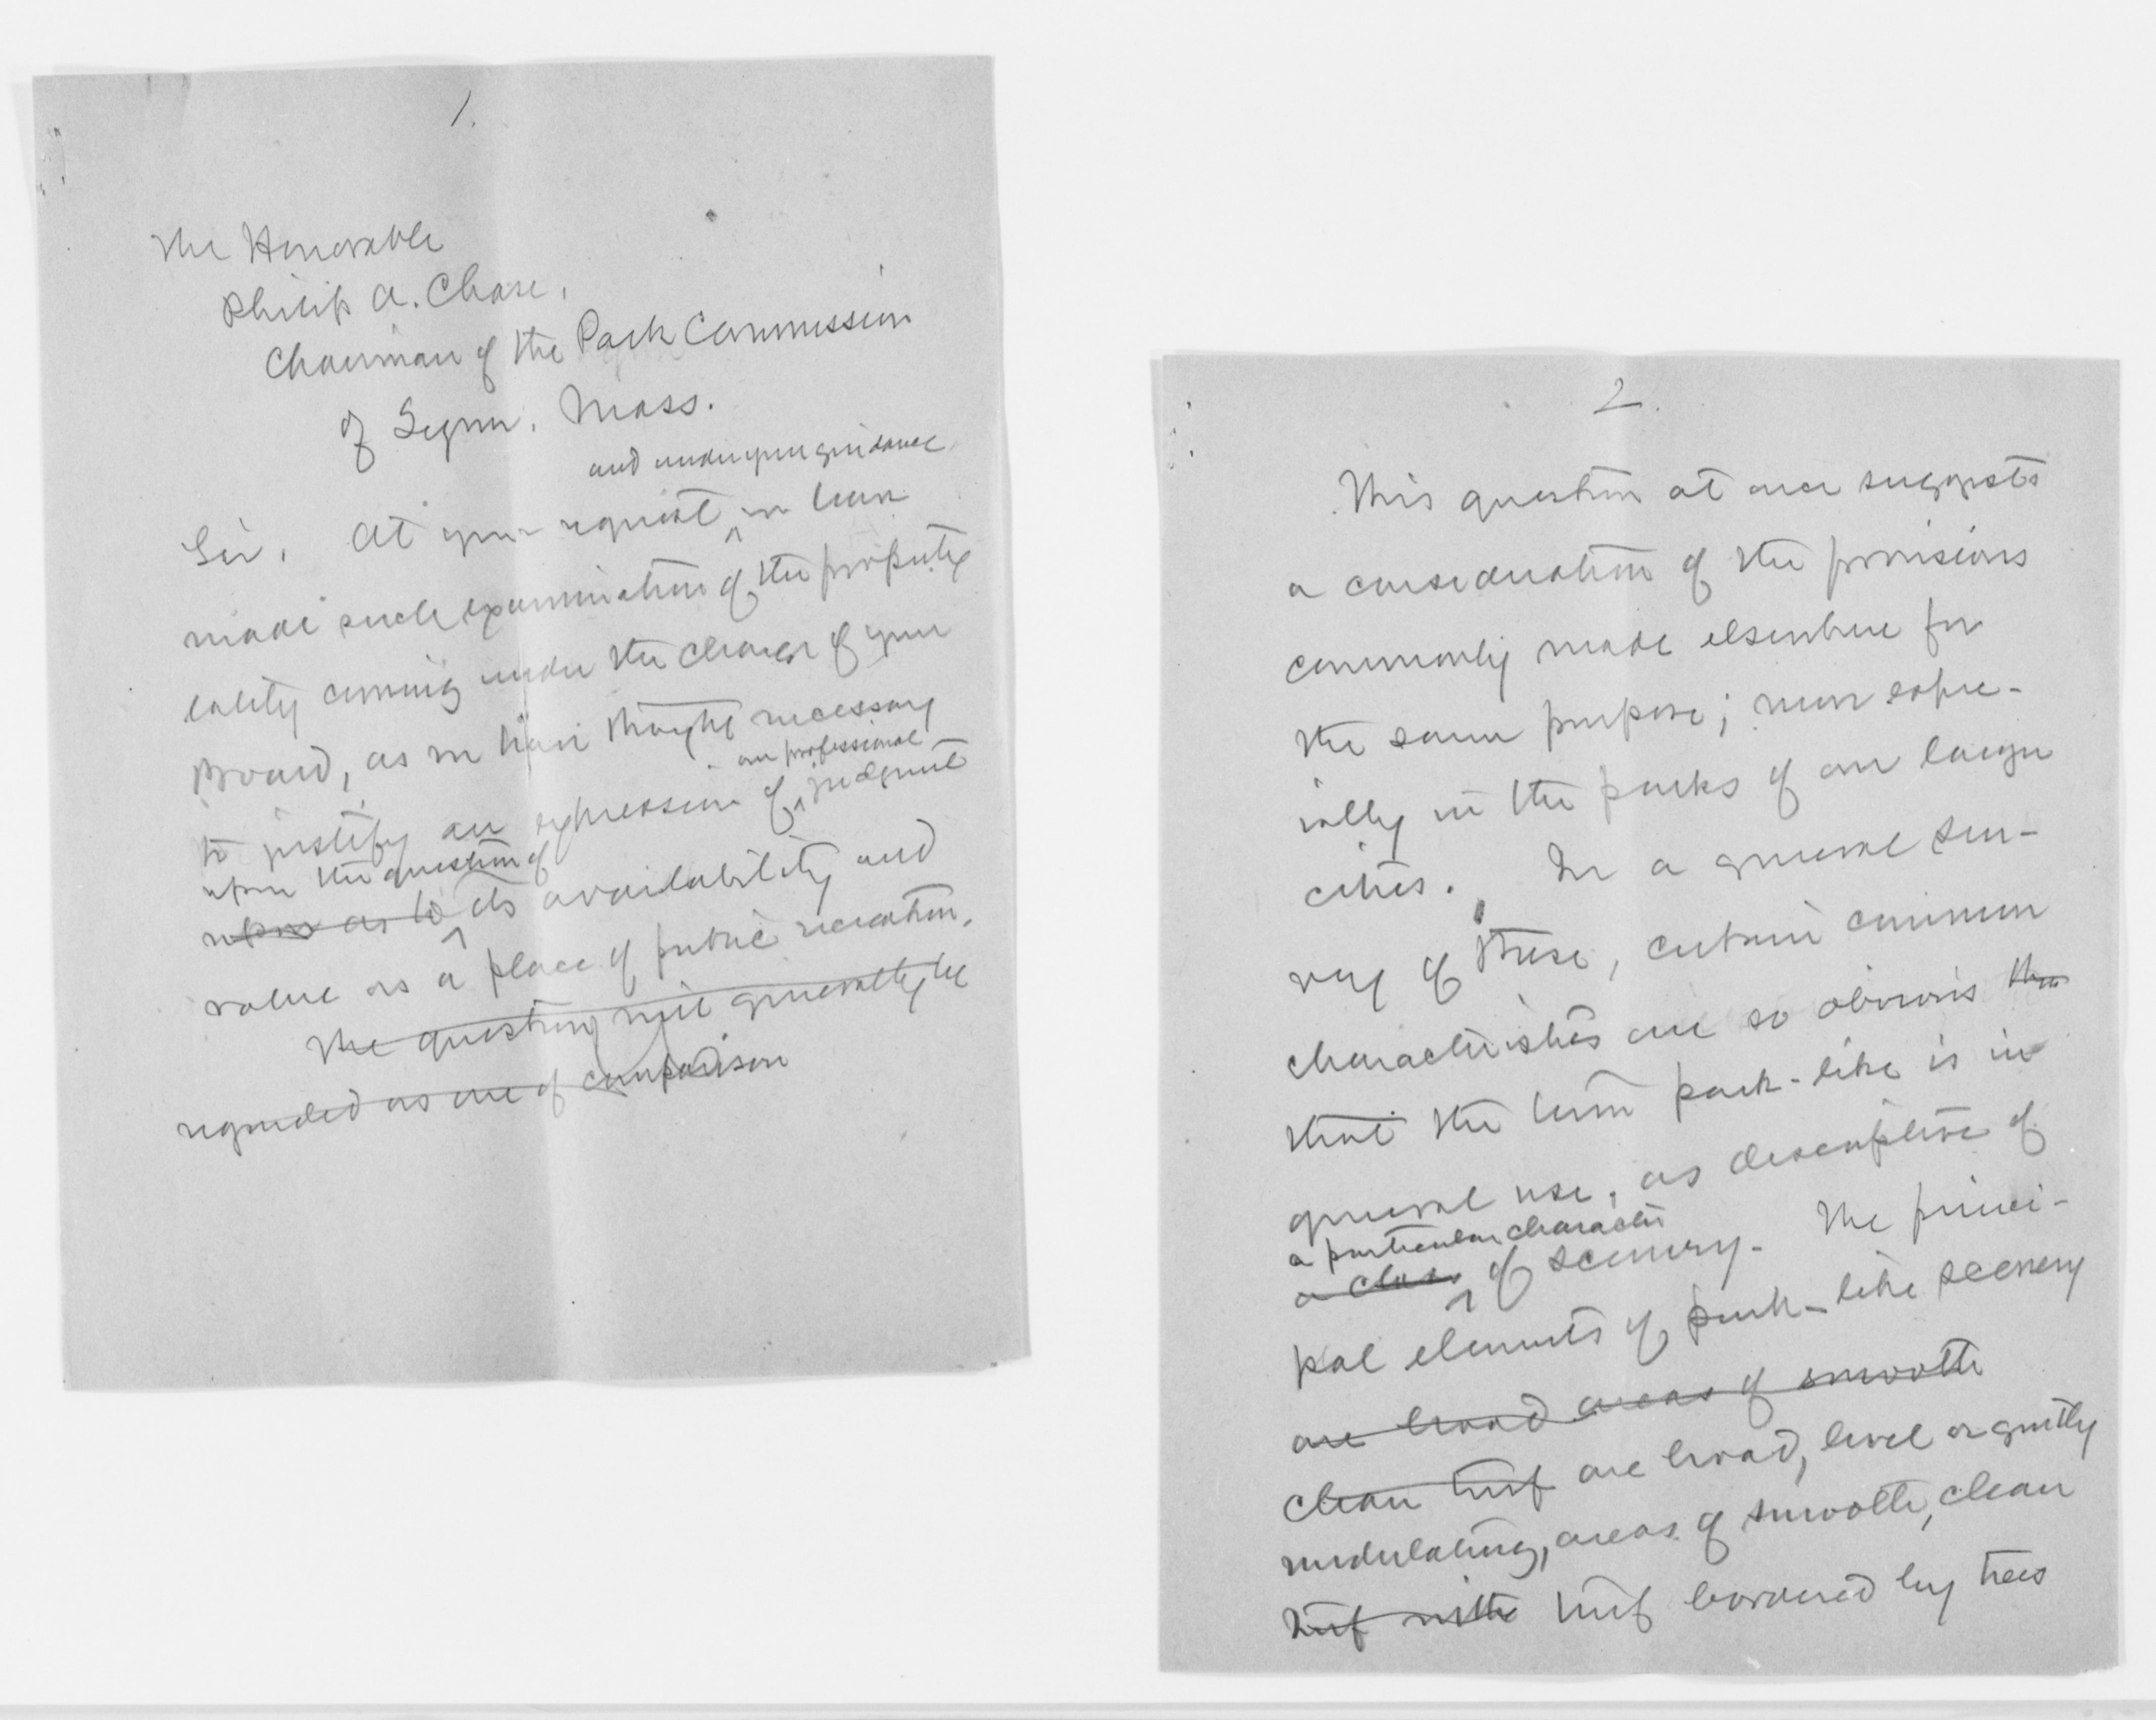 1.
The Honorable
Philip A. Chase,
Chairman of the Park Commission
of Lynn, Mass.
and under your guidance
Sir, At your request we have
made such examination of the property
lately coming under the charge of your
Board, as we have thought necessary
our professional
to justify an expression of judgment
upon the question of
upon as to its availability and
value as a place of public recreation.
The question will generally be
regarded as one of comparison
2.
This question at once suggests
a consideration of the provisions
commonly made elsewhere for
the same purpose; more espec-
ially in the parks of our larger
cities. In a general sur-
vey of these, certain common
characteristics are so obvious that
that the term park-like is in
general use, as descriptive of
a particular character
a class of scenery. The princi-
pal elements of park-like scenery
are broad areas of smooth
clean turf are broad, level or gently
undulating, areas of smooth, clean
turf with turf bordered by trees